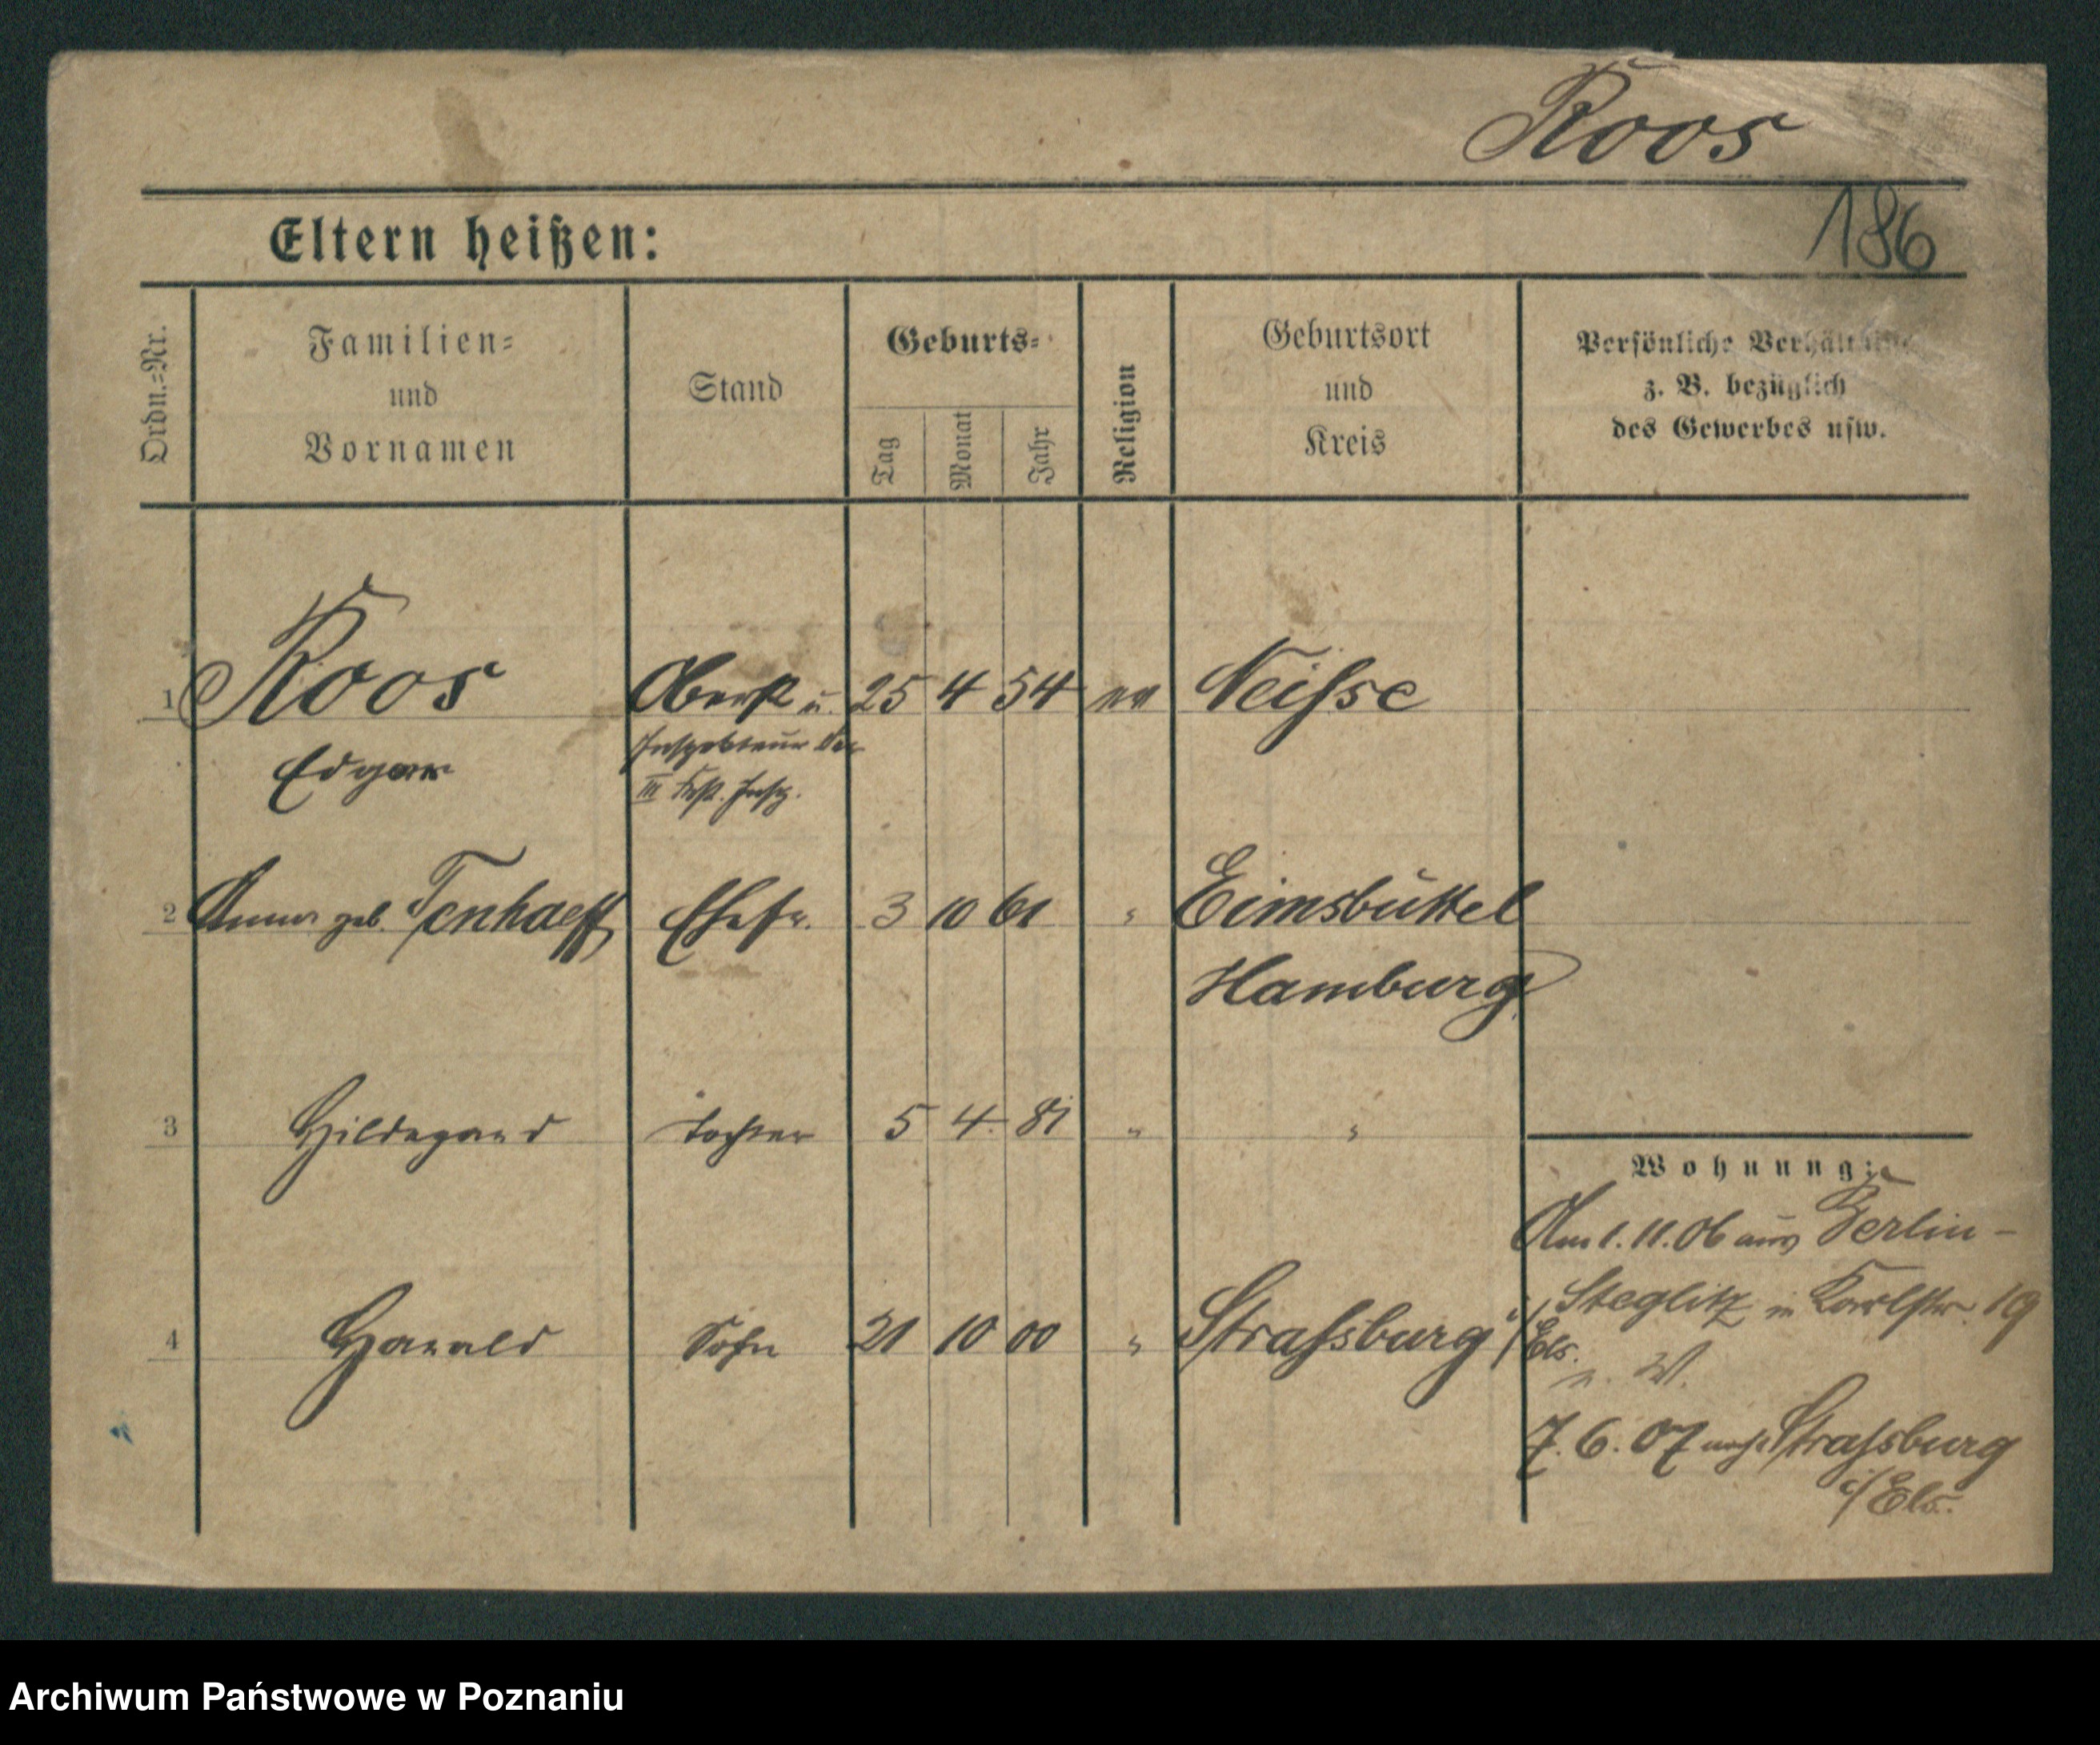 Roos
186
Eltern heißen:
Ordn.=Nr.
Familien=
und
Vornamen
Stand
Geburts=
Tag
Monat
Jahr
Religion
Geburtsort
und
Kreis
Persönliche Verhältnisse
z. B. bezüglich
des Gewerbes usw.
1 Roos Oberst u. 25 4 54 ev Neisse
Edgar Inspekteur der
III Fest. Insp.
2 Anna geb. Tenhaeff Ehefr. 3 10 61 " Eimsbüttel
Hamburg
3 Hildegard Tochter 5 4. 81 " "
Wohnung:
Am 1. 11. 06 aus Berlin-
Steglitz in Karlstr. 19
4 Harald Sohn 21 10 00 " Strassburg i/Els.
W.
7. 6. 07 nach Strassburg
i/Els.
Archiwum Państwowe w Poznaniu